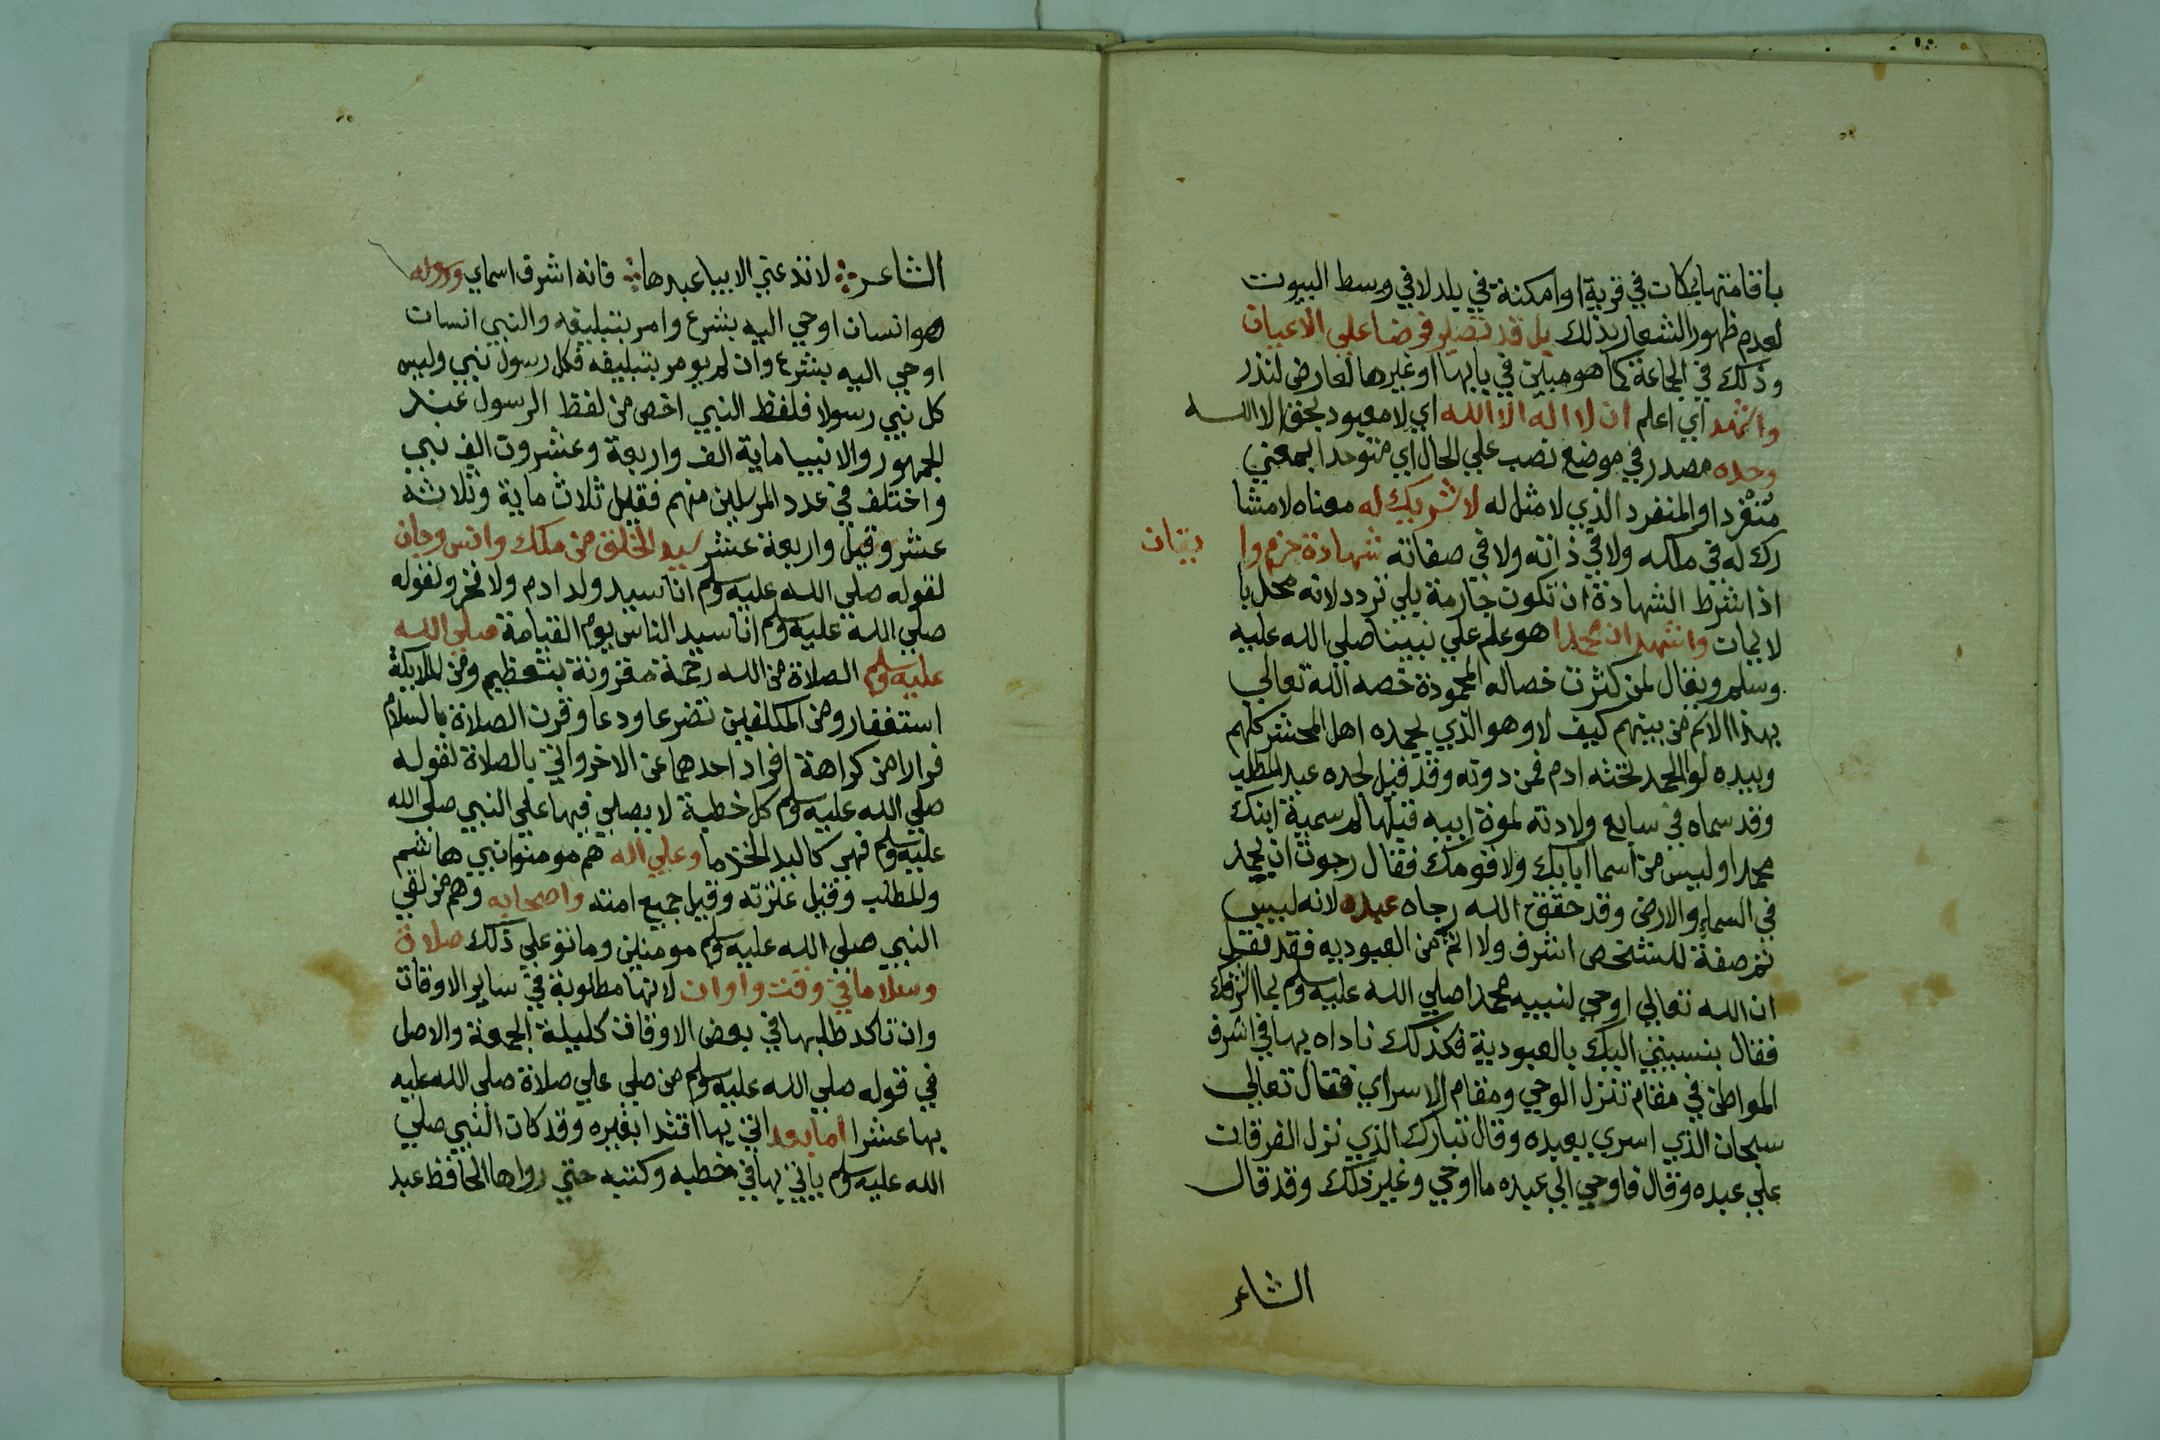 باقامتها بمكان في قرية او امكنة في بلد لا في وسط البيوت
لعدم ظهور الشعار بذلك بل قد تصير فرضا علي الاعيان
وذلك في الجماعة كما هو مبين في بابها او غيرها لعارض لنذر
واشهد اي اعلم ان لا اله الا الله اي لا معبود بحق الا الله
وحده مصدر في موضع نصب علي الحال اي متوحدا بمعني
منفردا والمنفرد الذي لا مثل له لا شريك له معناه لا مشا
رك له في ملكه ولا في ذاته ولا في صفاته شهادة جزم وا يقان
اذ شرط الشهادة ان تكون جازمة بلي تردد لانه محل با
لايمان واشهد ان محمدا هو علم علي نبينا صلي الله عليه
وسلم ويقال لمن كثرت خصاله المحمودة خصه الله تعالي
بهذا الاسم من بينهم كيف لا وهو الذي يحمده اهل المحشر كلهم
وبيده لوا الحمد تحته ادم فمن دونه وقد قيل لجده عبد المطلب
وقد سماه في سابع ولادته لموت ابيه قبلها لم سميت ابنك
محمدا وليس من اسما ابايك ولا قومك فقال رجوت ان يحمد
في السماء والارض وقد حقق الله رجاه عبده لانه ليس
ثم صفة للشخص اشرف ولا اتم من العبوديه فقد نقل
ان الله تعالي اوحي لنبيه محمدا صلي الله عليه وسلم بما اشرفك
فقال بنسبتي اليك بالعبودية فكذلك ناداه بها في اشرف
المواطن في مقام تنزل الوحي ومقام الاسراي فقال تعالي
سبحان الذي اسري بعبده وقال تبارك الذي نزل الفرقان
علي عبده وقال فاوحي الي عبده ما اوحي وغير ذلك وقد قال
الشاعر
الشاعر لا تدعني الا بيا عبدها فانه اشرف اسماي ورسوله
هو انسان اوحي اليه بشرع وامر بتبليغه والنبي انسان
اوحي اليه بشرع وان لم يومر بتبليغه فكل رسول نبي وليس
كل نبي رسولا فلفظ النبي اخص من لفظ الرسول عند
الجمهور والانبيا ماية الف واربعة وعشرون الف نبي
واختلف في عدد المرسلين منهم فقيل ثلاث ماية وثلاثة
عشر وقيل واربعة عشر سيد الخلق من ملك وانس وجان
لقوله صلي الله عليه وسلم انا سيد ولد ادم ولا فخر ولقوله
صلي الله عليه وسلم انا سيد الناس يوم القيامة صلي الله
عليه وسلم الصلاة من الله رحمة مقرونة بتعظيم ومن الملايكة
استغفار ومن المكلفين تضرعا ودعا وقرن الصلاة بالسلام
فرارا من كراهة افراد احدهما عن الاخر واتي بالصلاة لقوله
صلي الله عليه وسلم كل خطبة لا يصلي فيها علي النبي صلي الله
عليه وسلم فهي كاليد الجذما وعلي اله هم مومنوا بني هاشم
والمطلب وقيل عترته وقيل جميع امته واصحابه وهم من لقي
النبي صلي الله عليه وسلم مومنين وماتو علي ذلك صلاة
وسلاما في وقت واوان لانها مطلوبة في ساير الاوقات
وان تاكد طلبها في بعض الاوقات كليلة الجمعة والاصل
في قوله صلي الله عليه وسلم من صلي علي صلاة صلي الله عليه
بها عشرا اما بعد اتي بها اقتدا بغيره وقد كان النبي صلي
الله عليه وسلم ياتي بها في خطبه وكتبه حتي رواها الحافظ عبد